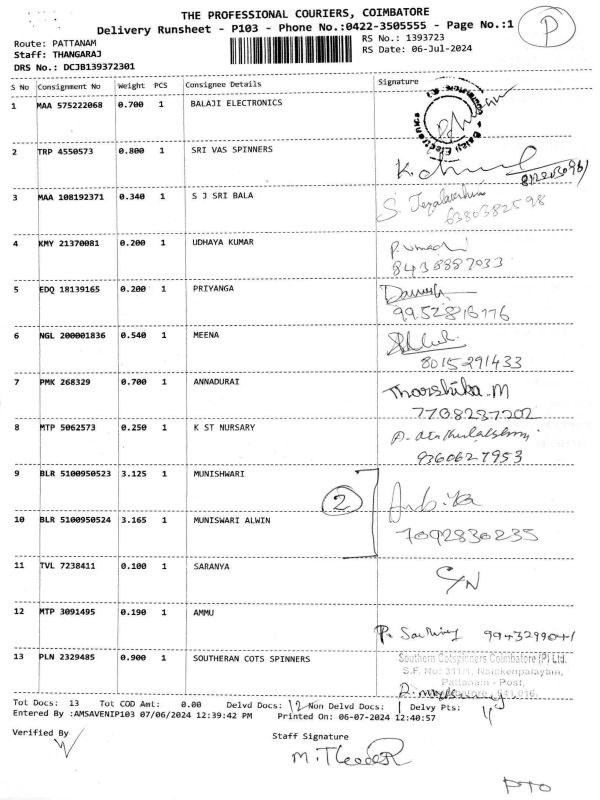 THE PROFESSIONAL COURIERS, COIMBATORE
Delivery Runsheet - P103 - Phone No.:0422-3505555 - Page No.:1
P
Route: PATTANAM
RS No.: 1393723
Staff: THANGARAJ
RS Date: 06-Jul-2024
DRS No.: DCJB139372301
S No Consignment No Weight PCS Consignee Details Signature
1 MAA 575222068 0.700 1 BALAJI ELECTRONICS
Balaji Electronics
2 TRP 4550573 0.800 1 SRI VAS SPINNERS
3 MAA 108192371 0.340 1 S J SRI BALA
6380382598
4 KMY 21370081 0.200 1 UDHAYA KUMAR P. Umadi
8438887033
5 EDQ 18139165 0.200 1 PRIYANGA
9952816776
6 NGL 200001836 0.540 1 MEENA
8015291433
7 PMK 268329 0.700 1 ANNADURAI Tharshika.M
7708237202
8 MTP 5062573 0.250 1 K ST NURSARY
9360627953
9 BLR 5100950523 3.125 1 MUNISHWARI
2
10 BLR 5100950524 3.165 1 MUNISWARI ALWIN 7092830235
11 TVL 7238411 0.100 1 SARANYA C/N
12 MTP 3091495 0.190 1 AMMU
9943299041
13 PLN 2329485 0.900 1 SOUTHERAN COTS SPINNERS Southern Cotspinners Coimbatore (P) Ltd.
S.F. No: 311/1, Naickenpalayam,
Pattanam - Post,
641 016.
Tot Docs: 13 Tot COD Amt: 0.00 Delvd Docs: 12 Non Delvd Docs: 1 Delvy Pts: 11
Entered By :AMSAVENIP103 07/06/2024 12:39:42 PM Printed On: 06-07-2024 12:40:57
Verified By
Staff Signature
PTO